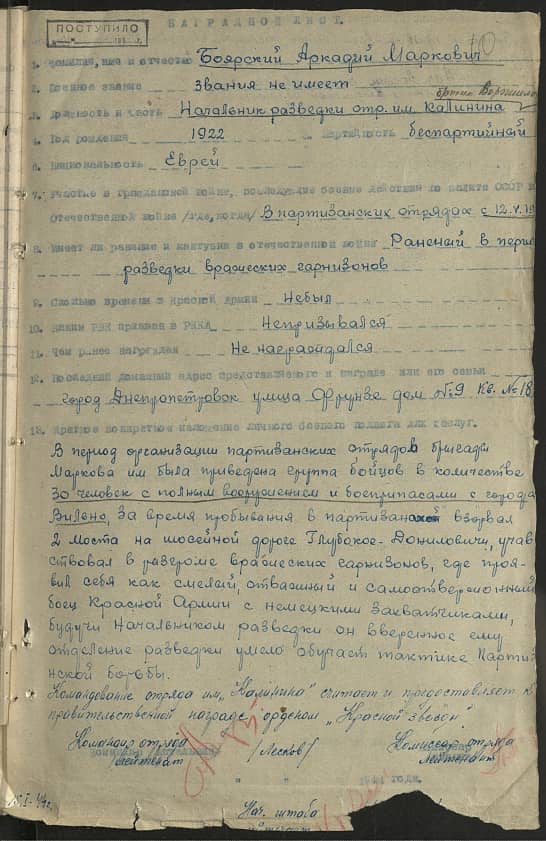 ПОСТУПИЛО
НАГРАДНОЙ ЛИСТ.
1. Фамилия, имя и отчество Боярский Аркадий Маркович
2. Военное звание Звания не имеет
3. Должность и часть Начальник разведки отр. им. Калинина
4. Год рождения 1922 партийность беспартийный
6. Национальность Еврей
7. Участие в гражданской войне, последующие боевые действия по защите СССР и
Отечественной войне /где, когда/ В партизанских отрядах с 12.V.19
8. Имеет ли ранения и контузии в отечественной войне Раненый в пери
разведки вражеских гарнизонов
9. Сколько времени в Красной Армии Небыл
10. Каким РВК призван в РККА Непризывался
11. Чем ранее награжден Не награждался
12. Последний домашний адрес представляемого к награде или его семьи
город Днепропетровск улица Фрунзе дом №9 Кв. №18
13. Краткое конкретное изложение личного боевого подвига или заслуг.
В период организации партизанских отрядов бригады
Маркова им была приведена группа бойцов в количестве
30 человек с полным вооружением и боеприпасами с города
Вильно, за время пробывания в взорвал
2 моста на шосейной дороге Глубокое-Дониловичи, учав
ствовал в разгроме вражеских гарнизонов, где проя-
вил себя как смелый, отважный и самоотверженный
боец Красной Армии с немецкими захватчиками,
будучи Начальником разведки он вверенное ему
отделение разведки умело обучает тактике Партиза
нской борьбы.
Командование отряда им. „Калинина" считает и предоставляет к
правительственной награде орденом „Красной звезды".
Командир отряда Комиссар отряда
лейтенант /Лесков/ лейтенант
года.
Нач. штаба